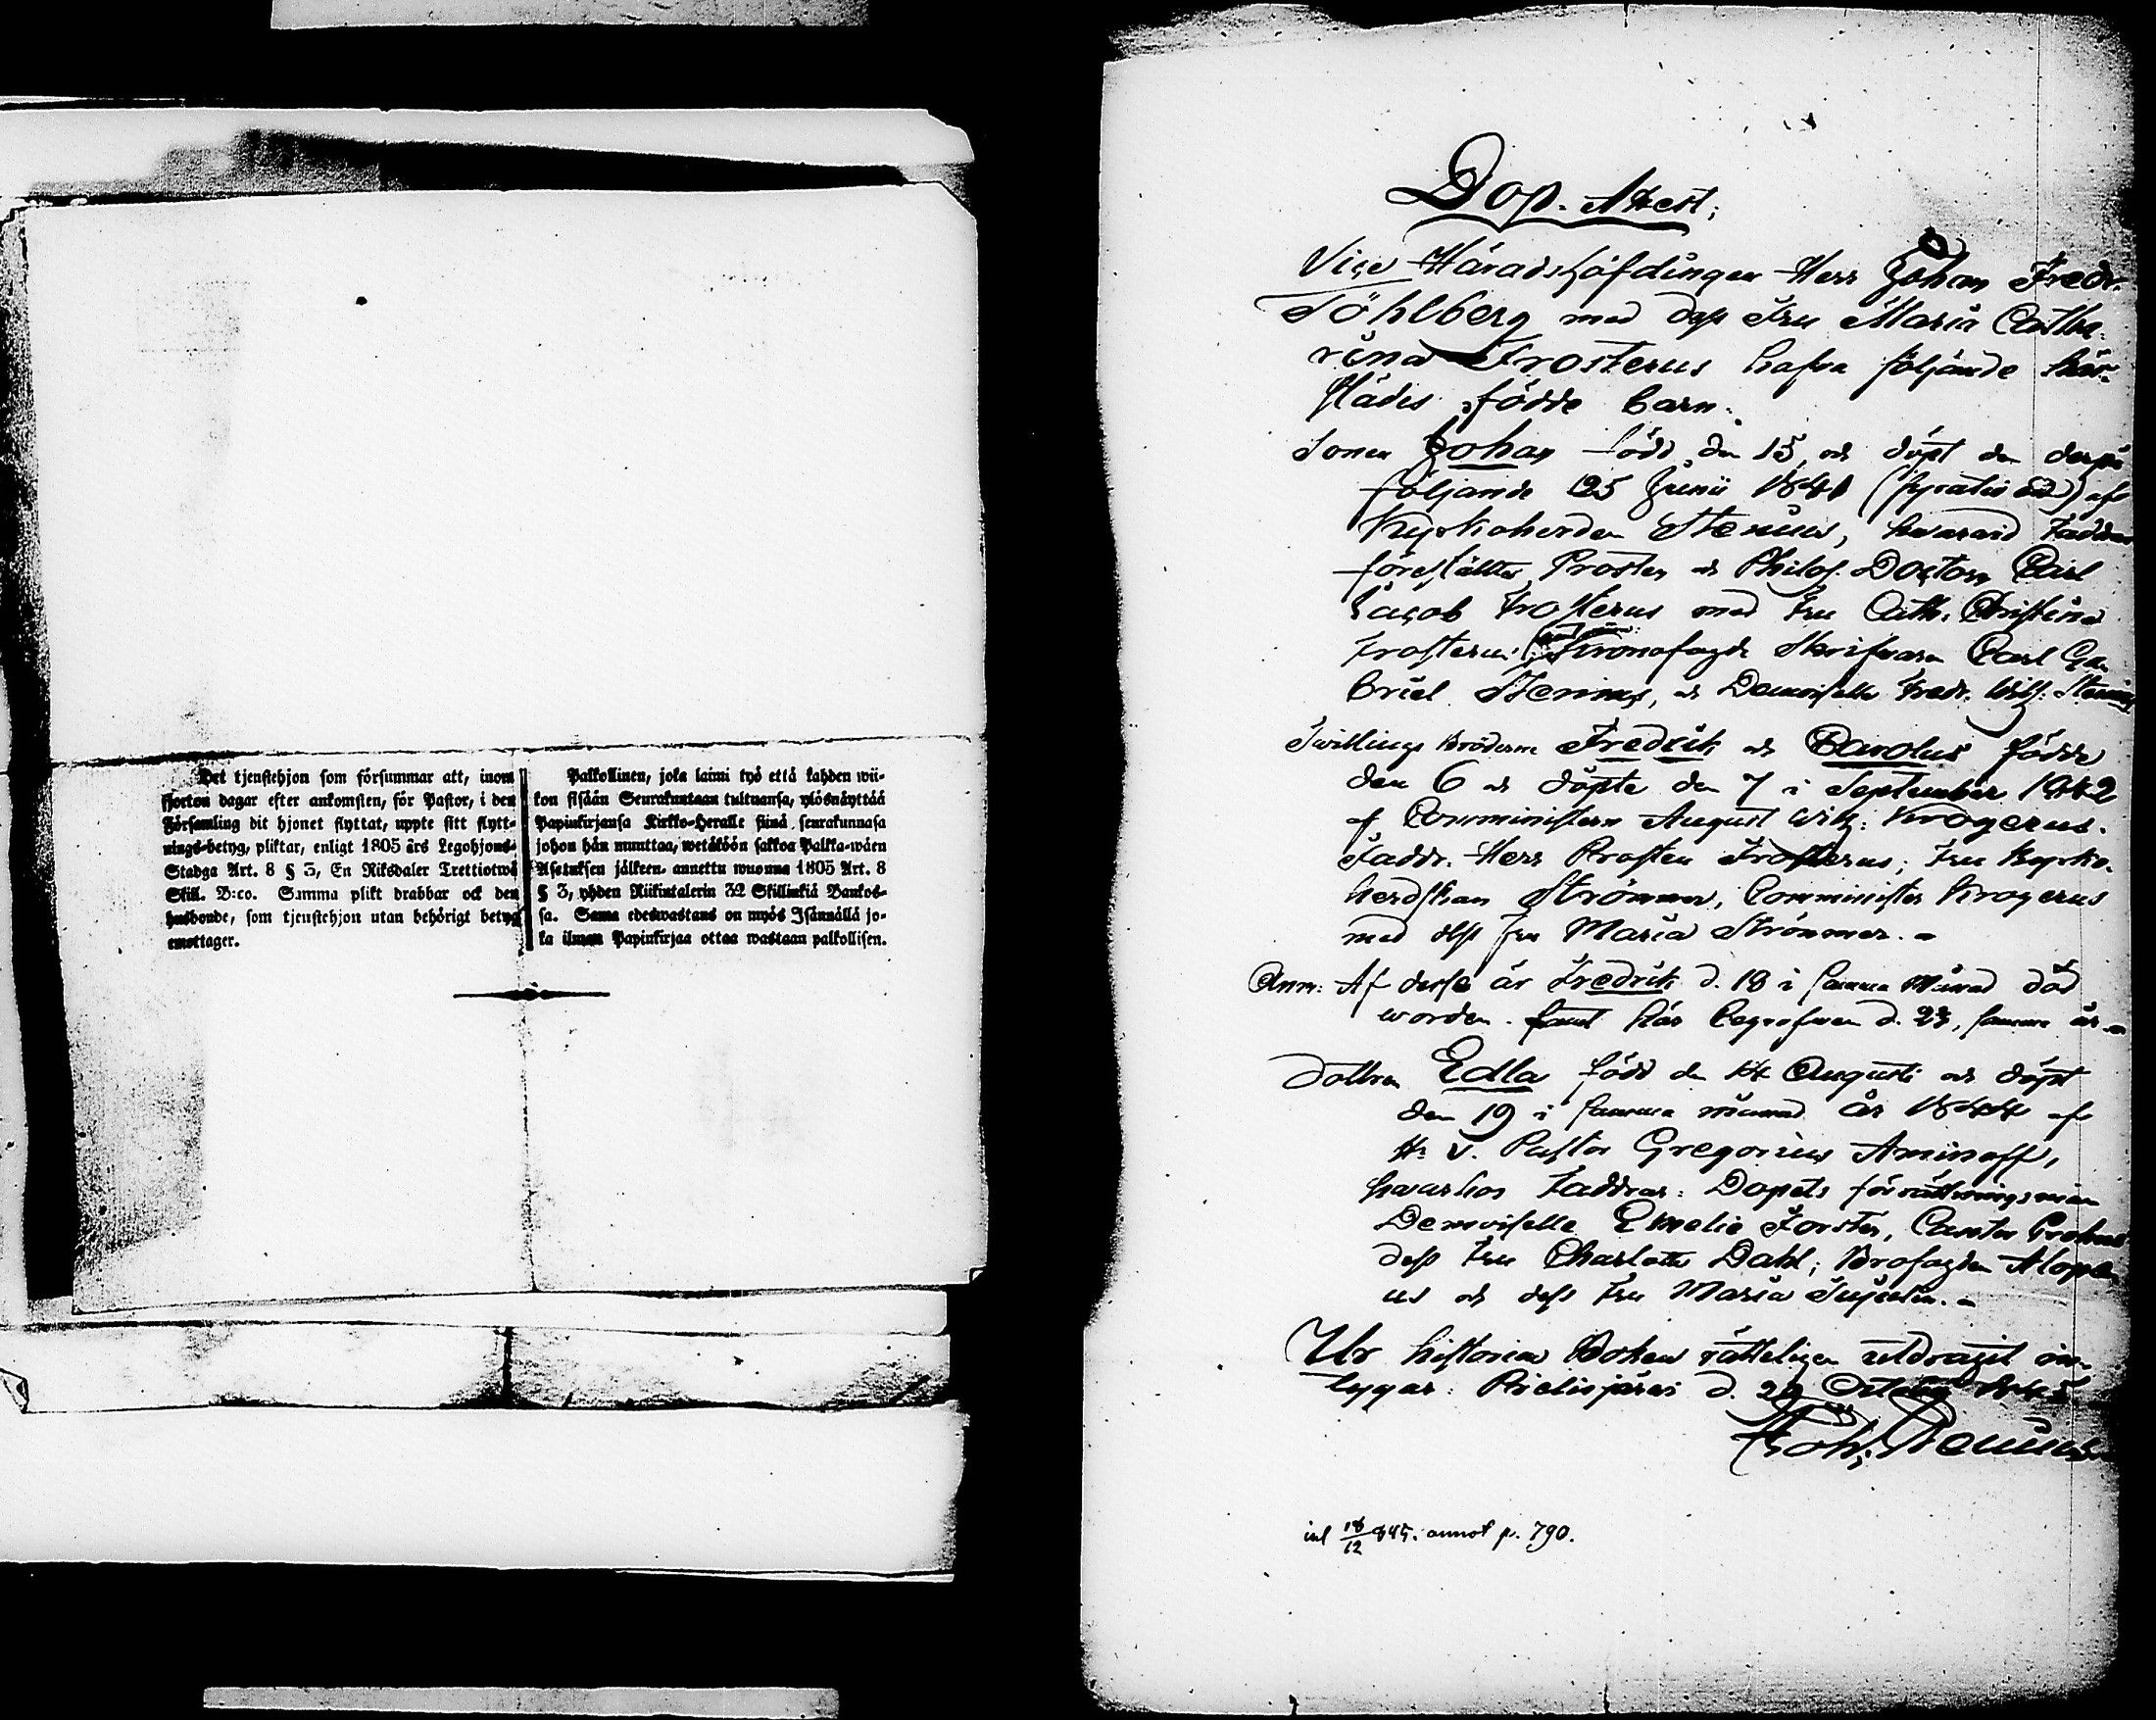 Det tjenstehjon som försummar att, inom
fjorton dagar efter ankomsten, för Pastor, i den
Församling dit hjonet flyttat, uppte sitt flytt-
nings-betyg, pliktar, enligt 1805 års Legohjons-
Stadga Art. 8 § 3, En Riksdaler Trettiotwå
Skill. B:co. Samma plikt drabbar ock den
husbonde, som tjenstehjon utan behörigt betyg
emottager.
Palkollinen, joka laimi työ että kahden wii-
kon sisään Seurakuntaan tultuansa, ylösnäyttää
Papinkirjansa Kirkko-Herralle siinä seurakunnasa
johon hän muuttaa, wetäköön sakkoa Palkka-wäen
Asetuksen jälkeen, annettu wuonna 1805 Art. 8
§ 3, yhden Riikintalerin 32 Skillinkiä Bankos-
sa. Sama edeswastaus on myös Isännällä jo-
ka ilman Papinkirjaa ottaa wastaan palkollisen.
Dop-Attest;
Vice Häradshöfdingen Herr Johan Fredr.
Söhlberg med dess Fru Maria Catha-
rina Frosterus hafva följande här-
städes födde barn:
Sonen Johan född den 15 och döpt den derpå
följande 25 Junii 1841 (fyratio ett) af
Kyrkoherden Stenius, hvarvid Faddrar
föreställte Prosten och Philos. Doctorn Carl
Jacob Frosterus med Fru Cath. Christina
Frosterus; Kronofogde Skrifvaren Carl Ga-
briel Stenius, och Demoiselle Fredr. Wilh. Stenius
Twillings Bröderne Fredrik och Carolus födde
den 6 och döpte den 7 i September 1842
af Comministern August Wilh: Krogerus.
Faddr. Herr Prosten Frosterus; Fru Kyrko-
herdskan Strömmer, Comminister Krogerus
med dess Fru Maria Strömmer.
Anm: Af desse är Fredrik d. 18 i samma Månad död
worden. samt här begrafwen d. 23, samma år
Dottren Edla född den 14 Augusti och döpt
den 19 i samma månad år 1844 af
Hr v. Pastor Gregorius Aminoff,
hwarhos Faddrar: Dopets förrättningsman
Demoiselle Emelie Forstén, Cantor
dess Fru Charlotta Dahl; Brofogden Alopæ-
us och dess Fru Maria
Ur historien Boken rätteligen utdragit in-
tygar: Pielisjärvi d. 29 October 1845
Joh: Stenius
inl 18/12 845. annot p. 790.